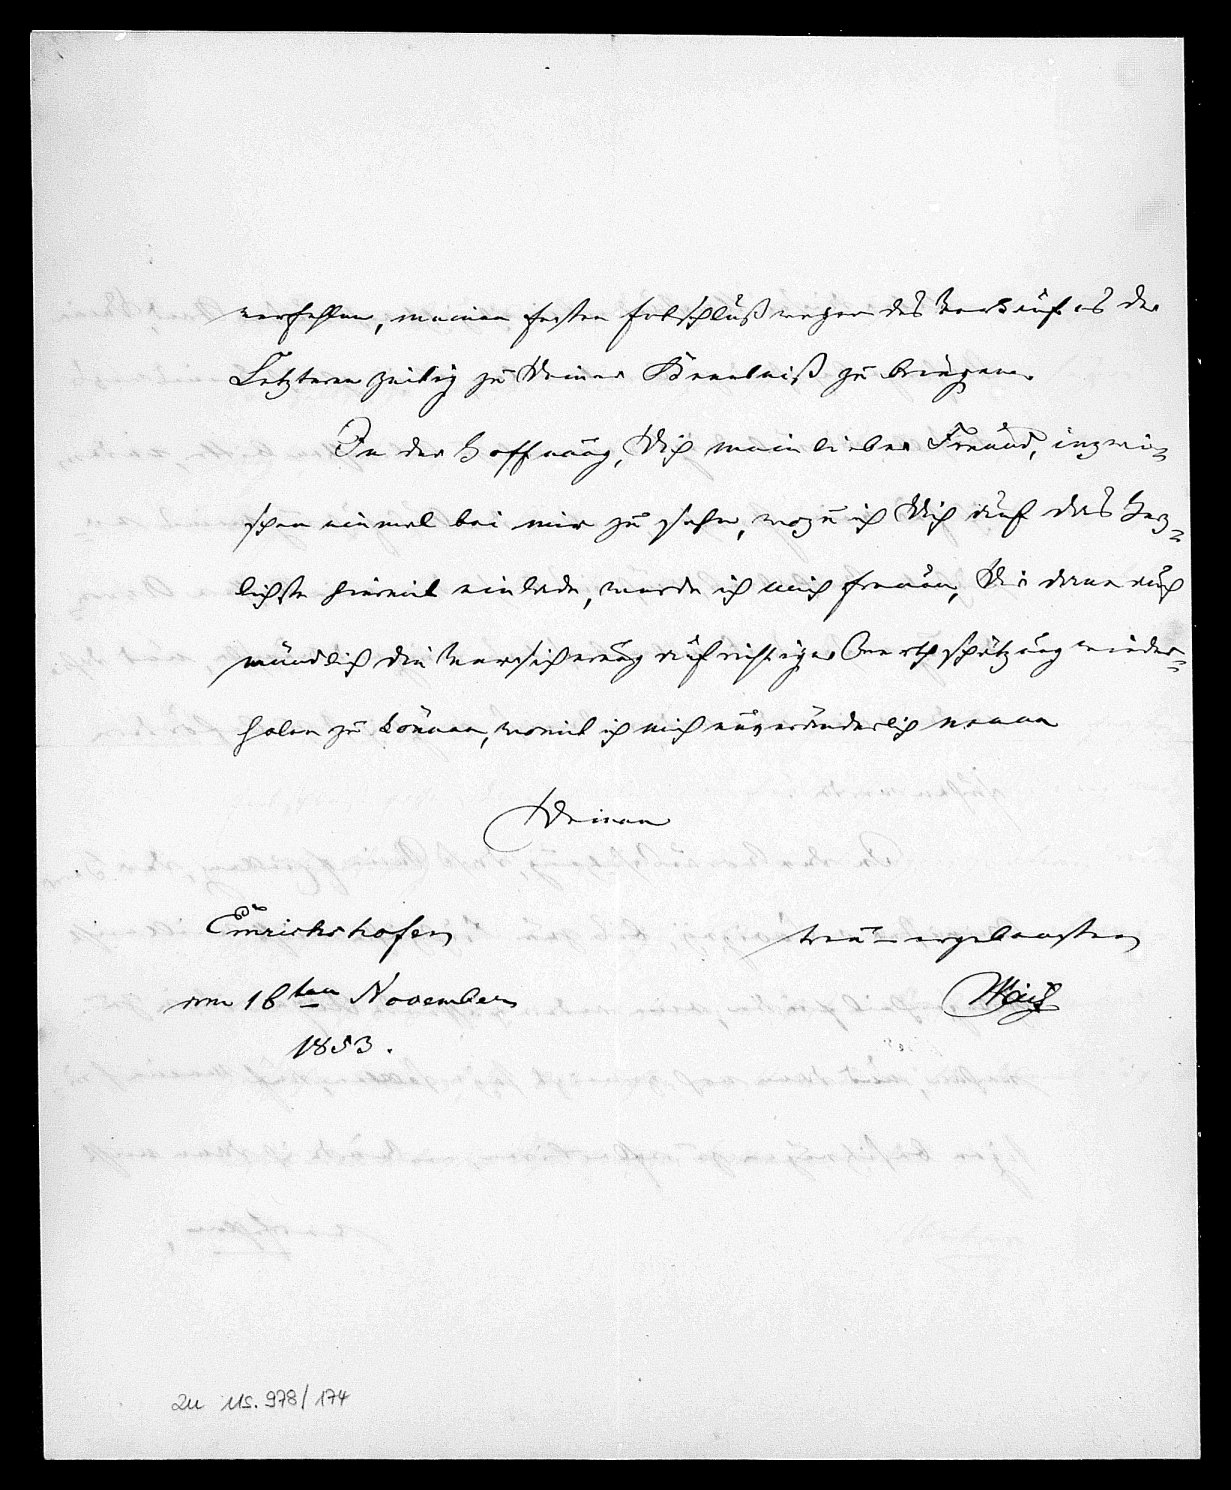 verfehlen, meinen festen Entschluß wegen des Verkaufes der
Letzteren zeitig zu Deiner Kenntniß zu bringen.
In der Hoffnung, Dich mein lieber Freund, inzwi-
schen einmal bei mir zu sehn, wozu ich Dich auf das Herz-
lichste hiermit einlade, werde ich mich freuen, Dir dann auch
mündlich die Versicherung aufrichtiger Werthschätzung wieder-
holen zu können, womit ich mich unveränderlich nenne
Deinen
Emrichshofen treu-ergebensten
am 16ten November
1853.
zu Ms. 978/174